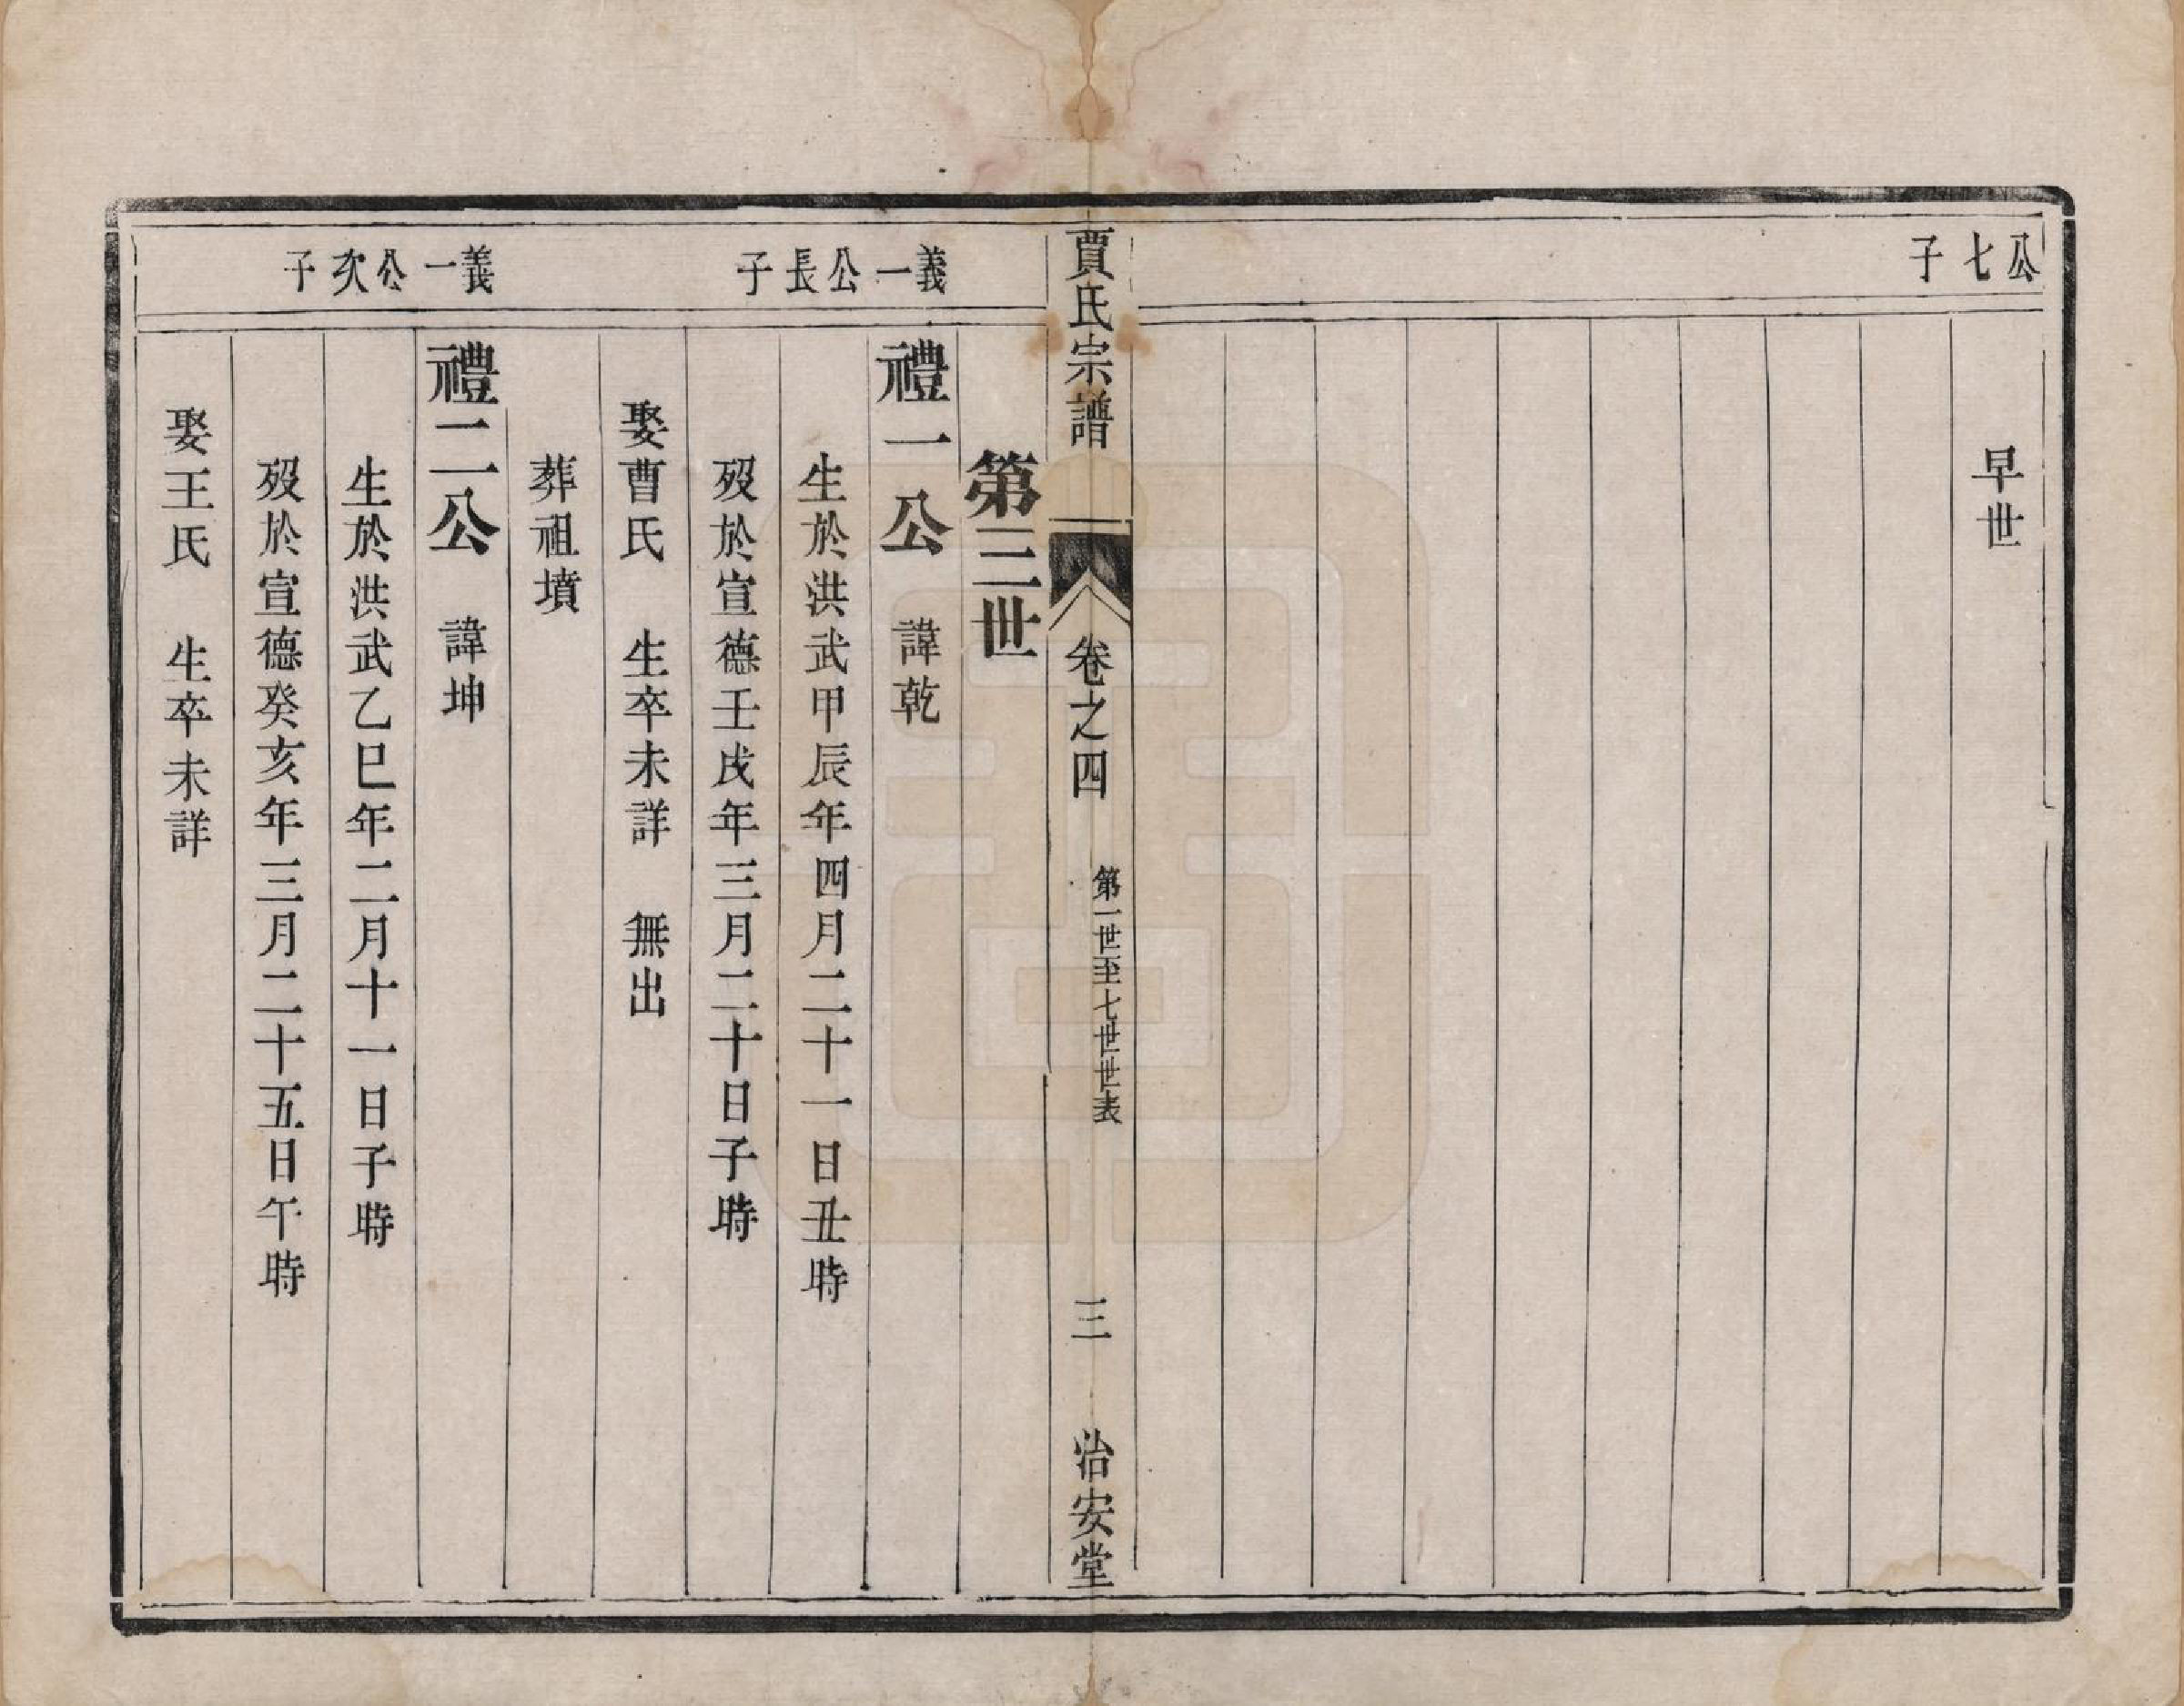 公七子
早世
賈氏宗譜
卷之四
第一世至七世世表
三
治安堂
第三世
義一公長子
禮一公 諱乾
生於洪武甲辰年四月二十一日丑時
歿於宣德壬戌年三月二十日子時
娶曹氏 生卒未詳 無出
葬祖墳
義一公次子
禮二公 諱坤
生於洪武乙巳年二月十一日子時
歿於宣德癸亥年三月二十五日午時
娶王氏 生卒未詳